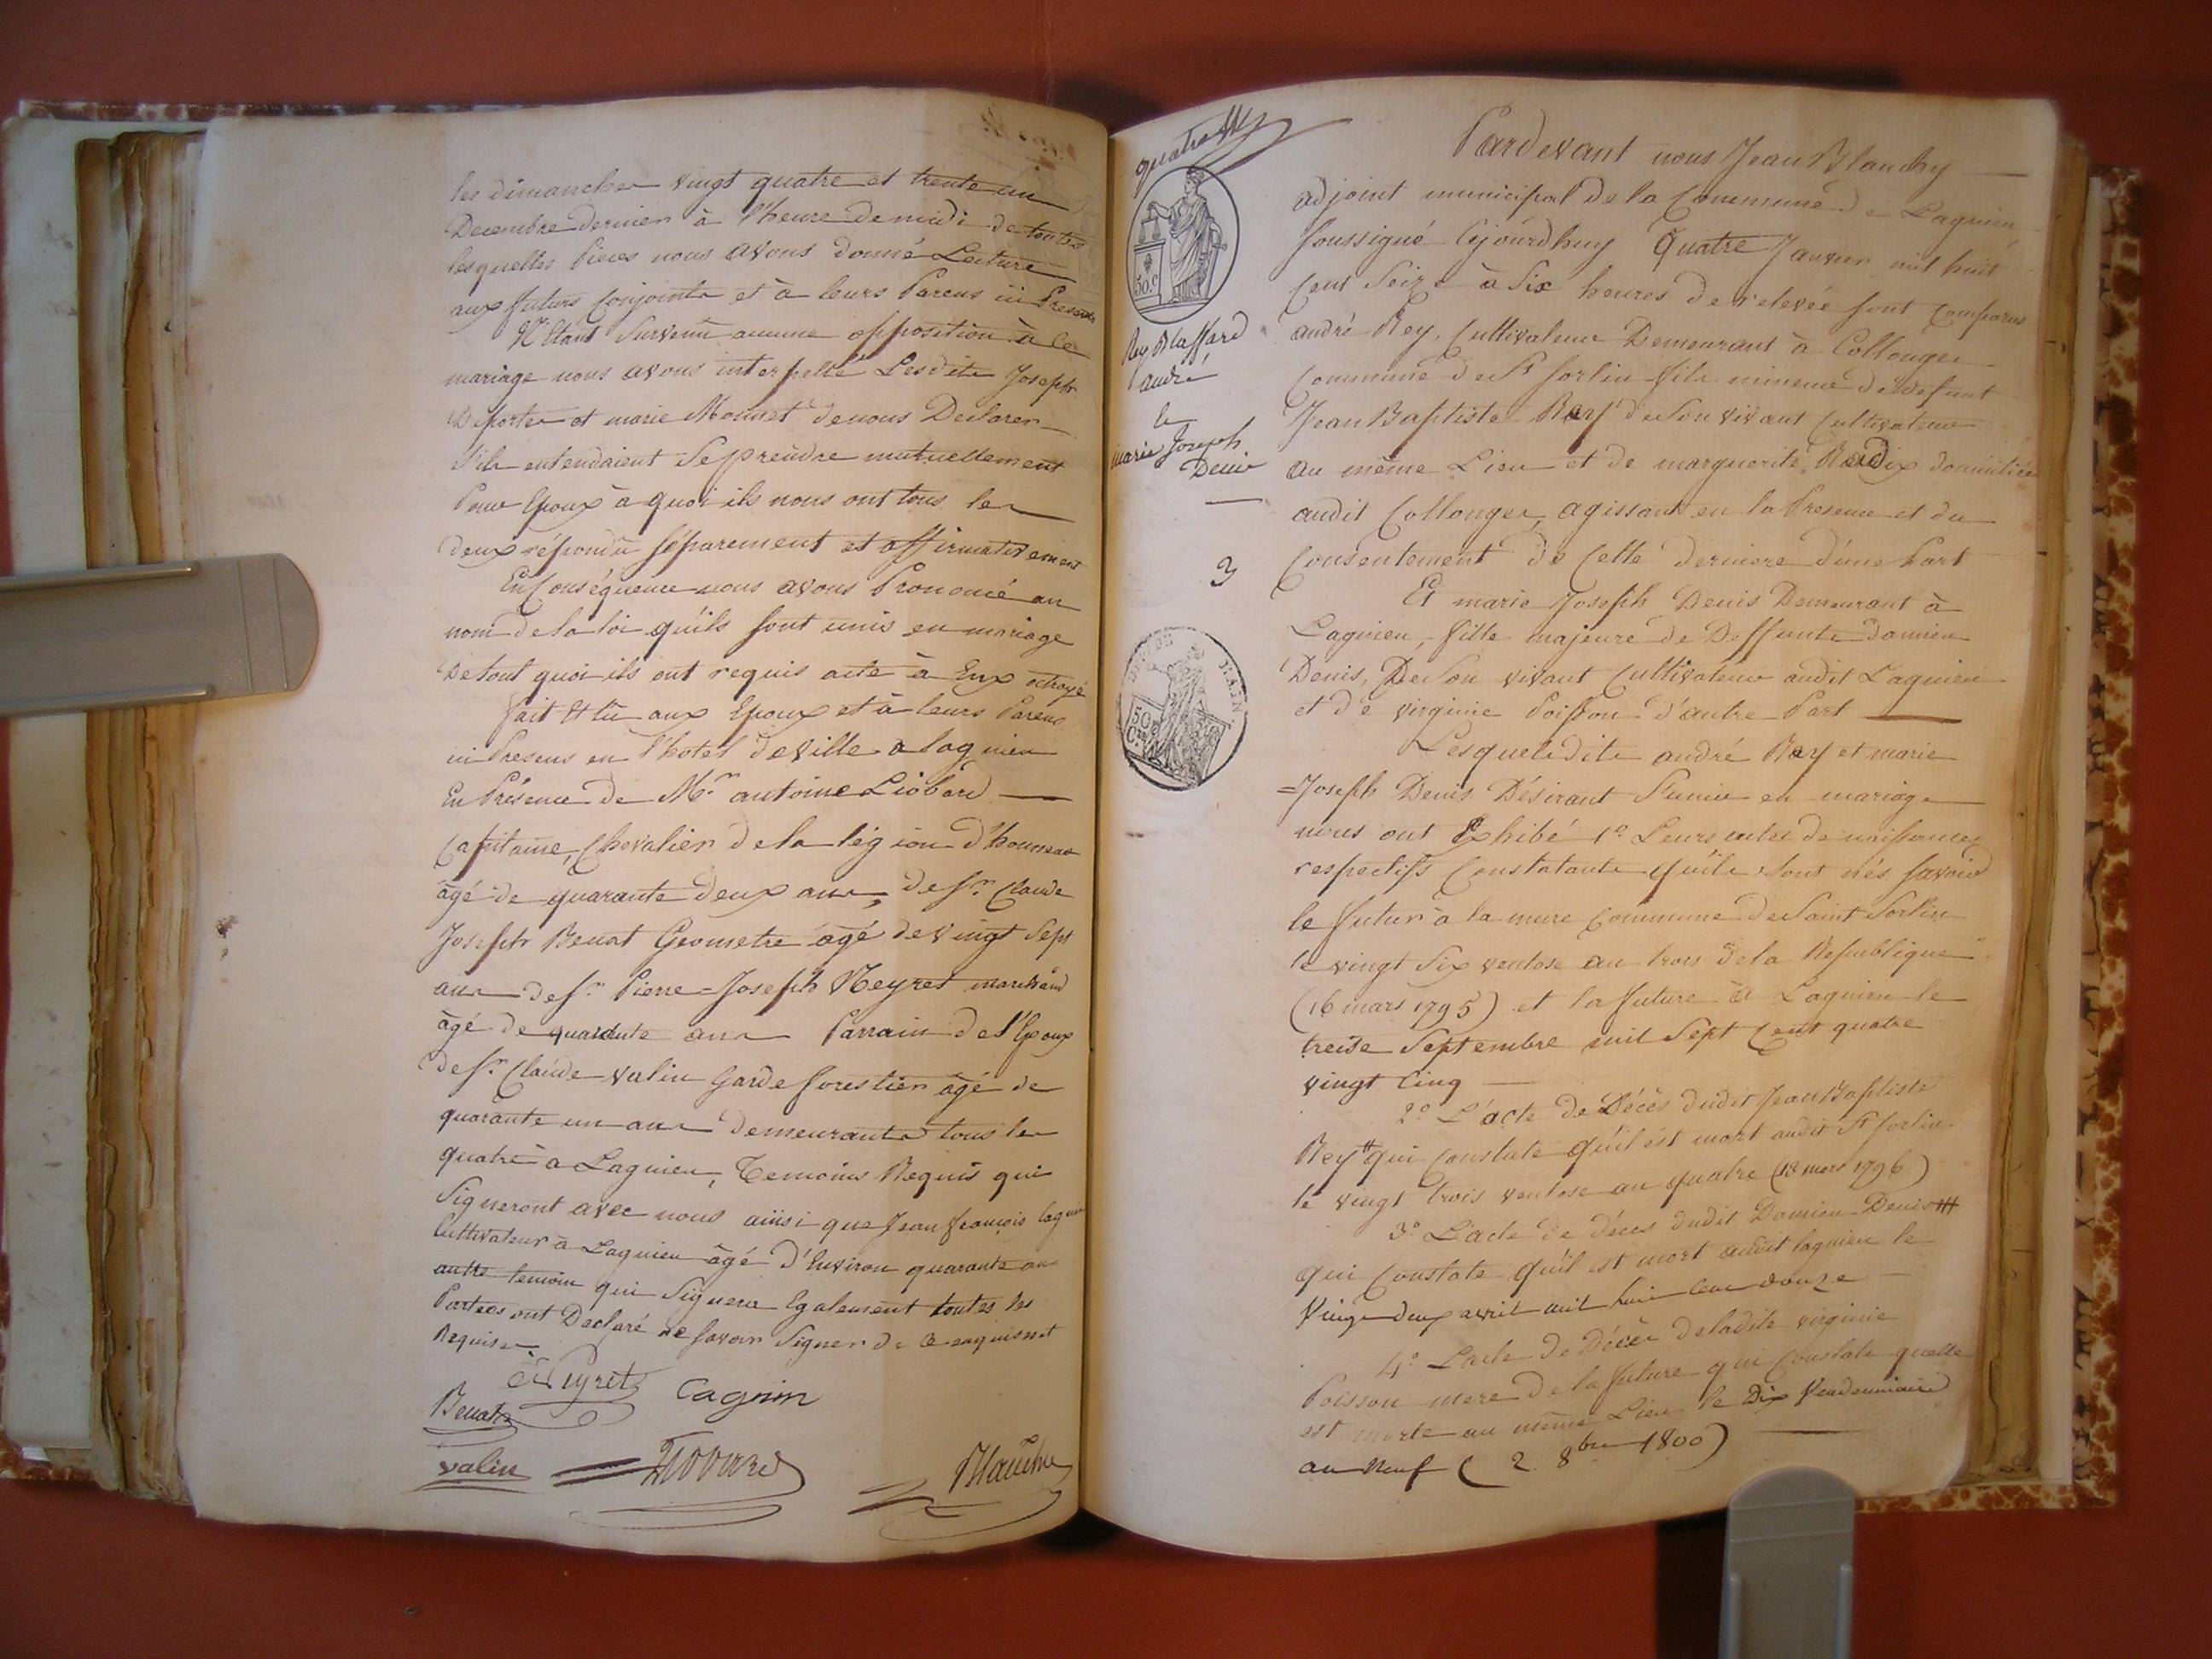 les dimanches vingt quatre et trente un
Decembre dernier à l'heure de midi de toutes
lesquelles Pieces nous avons donné Lecture
aux futurs Conjoints et à leurs Parens ici Presents
N'Etant Survenu aucune opposition à ce
mariage nous avons interpellé Lesdits Joseph
Deportes et marie Monnet de nous Declarer
s'ils entendaient Se prendre mutuellement
Pour Epoux à quoi ils nous ont tous les
deux répondu séparement et affirmativement
En Conséquence nous avons Prononcé au
nom de la loi qu'ils sont unis en mariage
De tout quoi ils ont requis acte à Eux octroyé
fait Et lu aux Epoux et à leurs Parens
ici Presens en l'hotel de ville a lagnieu
En Présence de Mr. antoine Liobard
Capitaine, Chevalier de la légion d'honneur
âgé de quarante deux ans, de Sr. Claude
Joseph Benat Geometre âgé de vingt Sept
ans de Sr. Pierre=Joseph Neyret marchand
âgé de quarante ans Parrain de l'Epoux
de Sr. Claude Valin Garde forestier âgé de
quarante un ans Demeurants tous les
quatre à Lagnieu, Temoins Requis qui
Signeront avec nous ainsi que Jean françois Cagnin
Cultivateur à Lagnieu âgé d'Environ quarante ans
autre temoin qui Signera Egalement toutes les
Parties ont Declaré ne savoir Signer de ce enquis et
Requises
Neyret
Benat Cagnin
valin Liobard Blanchy
quatre
50.c
Rey Blaffard
André
&
marie Joseph
Denis
3
L'AIN.
50
Cmes
Pardevant nous Jean Blanchy
adjoint municipal de la Commune de Lagnieu
soussigné Cejourdhuy Quatre Janvier mil huit
Cent Seize à Six heures de relevée sont Comparus
andré Rey, Cultivateur Demeurant à Collonges
Commune de St Sorlin fils mineur de defunt
Jean Baptiste Rey de Son vivant Cultivateur
au même Lieu et de marguerite Radix domiciliée
audit Collonges, agissant en la Presence et du
Consentement de Cette derniere d'une Part
Et marie Joseph Denis Demeurant à
Lagnieu, fille majeure de Deffunts Damien
Denis, De Son vivant Cultivateur audit Lagnieu
et de virginie Poisson d'autre Part
Lesquels dits andré Rey et marie
=Joseph Denis Désirant S'unir en mariage
nous ont Exhibé 1º. Leurs actes de naissances
respectifs Constatants qu'ils sont nés savoir
le futur à la meme Commune de Saint Sorlin
le vingt Six ventose an trois de la Republique
(16 mars 1795) et la future à Lagnieu le
treise Septembre mil Sept Cent quatre
vingt Cinq
2º. L'acte de Décès dudit Jean Baptiste
Rey # qui Constate qu'il est mort audit St Sorlin
le vingt trois ventose an quatre (13 mars 1796)
3º. L'acte de décès dudit Damien Denis
qui Constate qu'il est mort audit lagnieu le
Vingt deux avril mil huit cent douze
4º. L'acte de Décès de ladite virginie
Poisson mere de la future qui Constate quelle
est morte au même Lieu le Dix Vendemiaire
an Neuf ( 2. 8bre 1800)